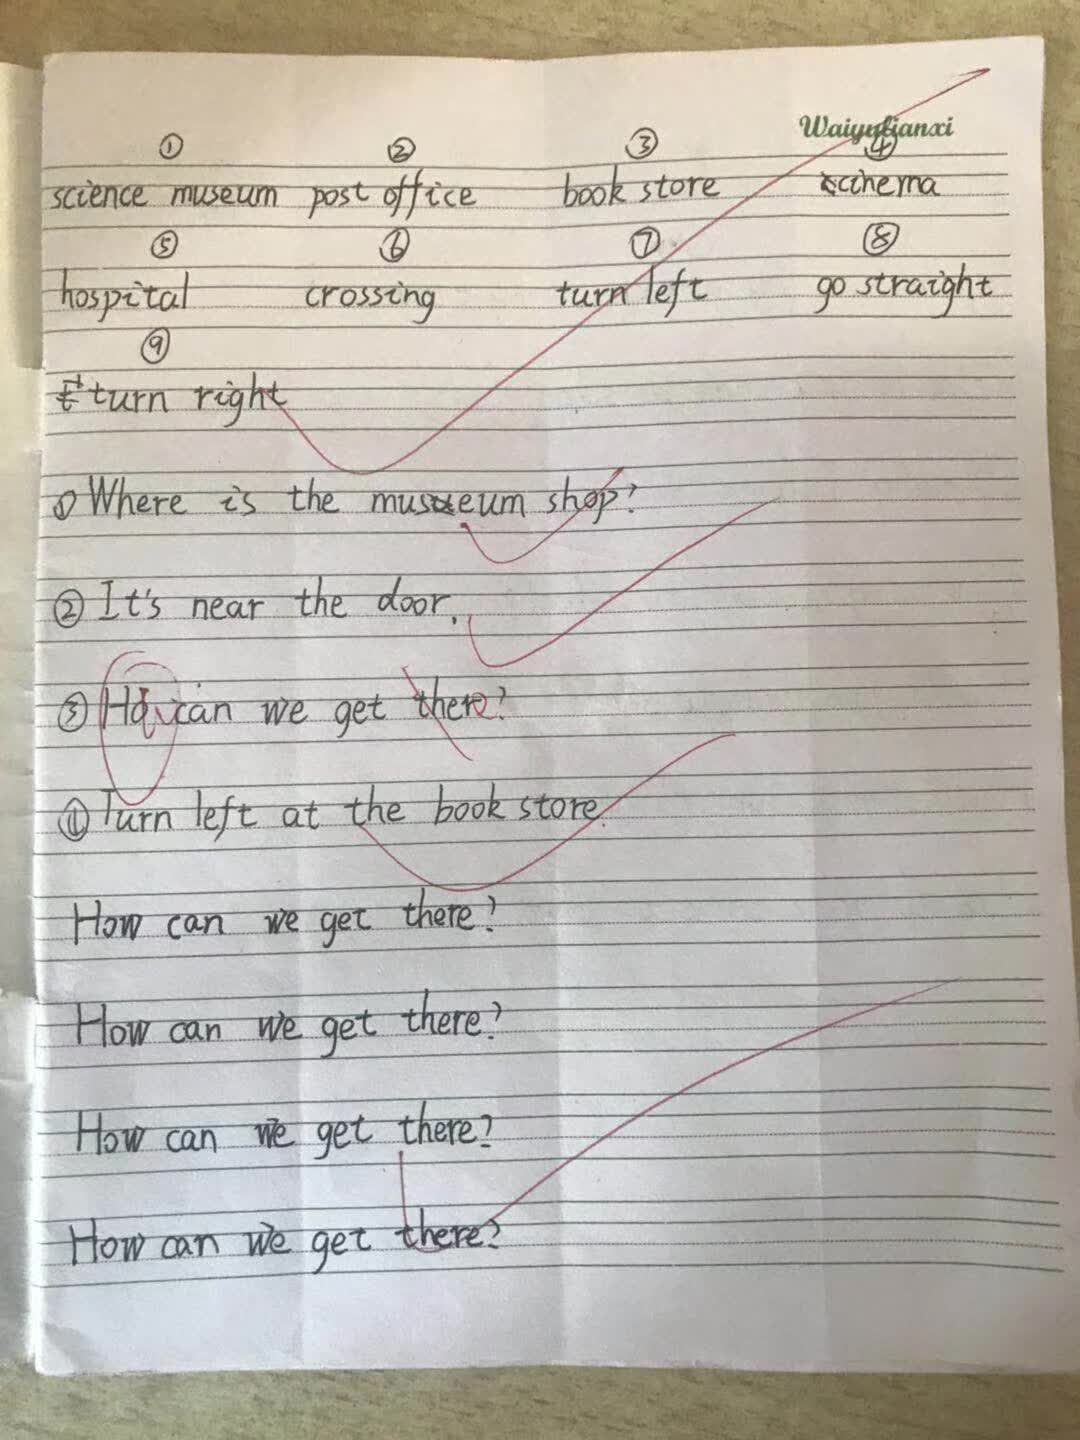 Waiyulianxi
① ② ③ ④
science museum post office book store cinema
⑤ ⑥ ⑦ ⑧
hospital crossing turn left go straight
⑨
turn right
① Where is the museum shop?
② It's near the door.
③ How can we get there?
④ Turn left at the book store.
How can we get there?
How can we get there?
How can we get there?
How can we get there?